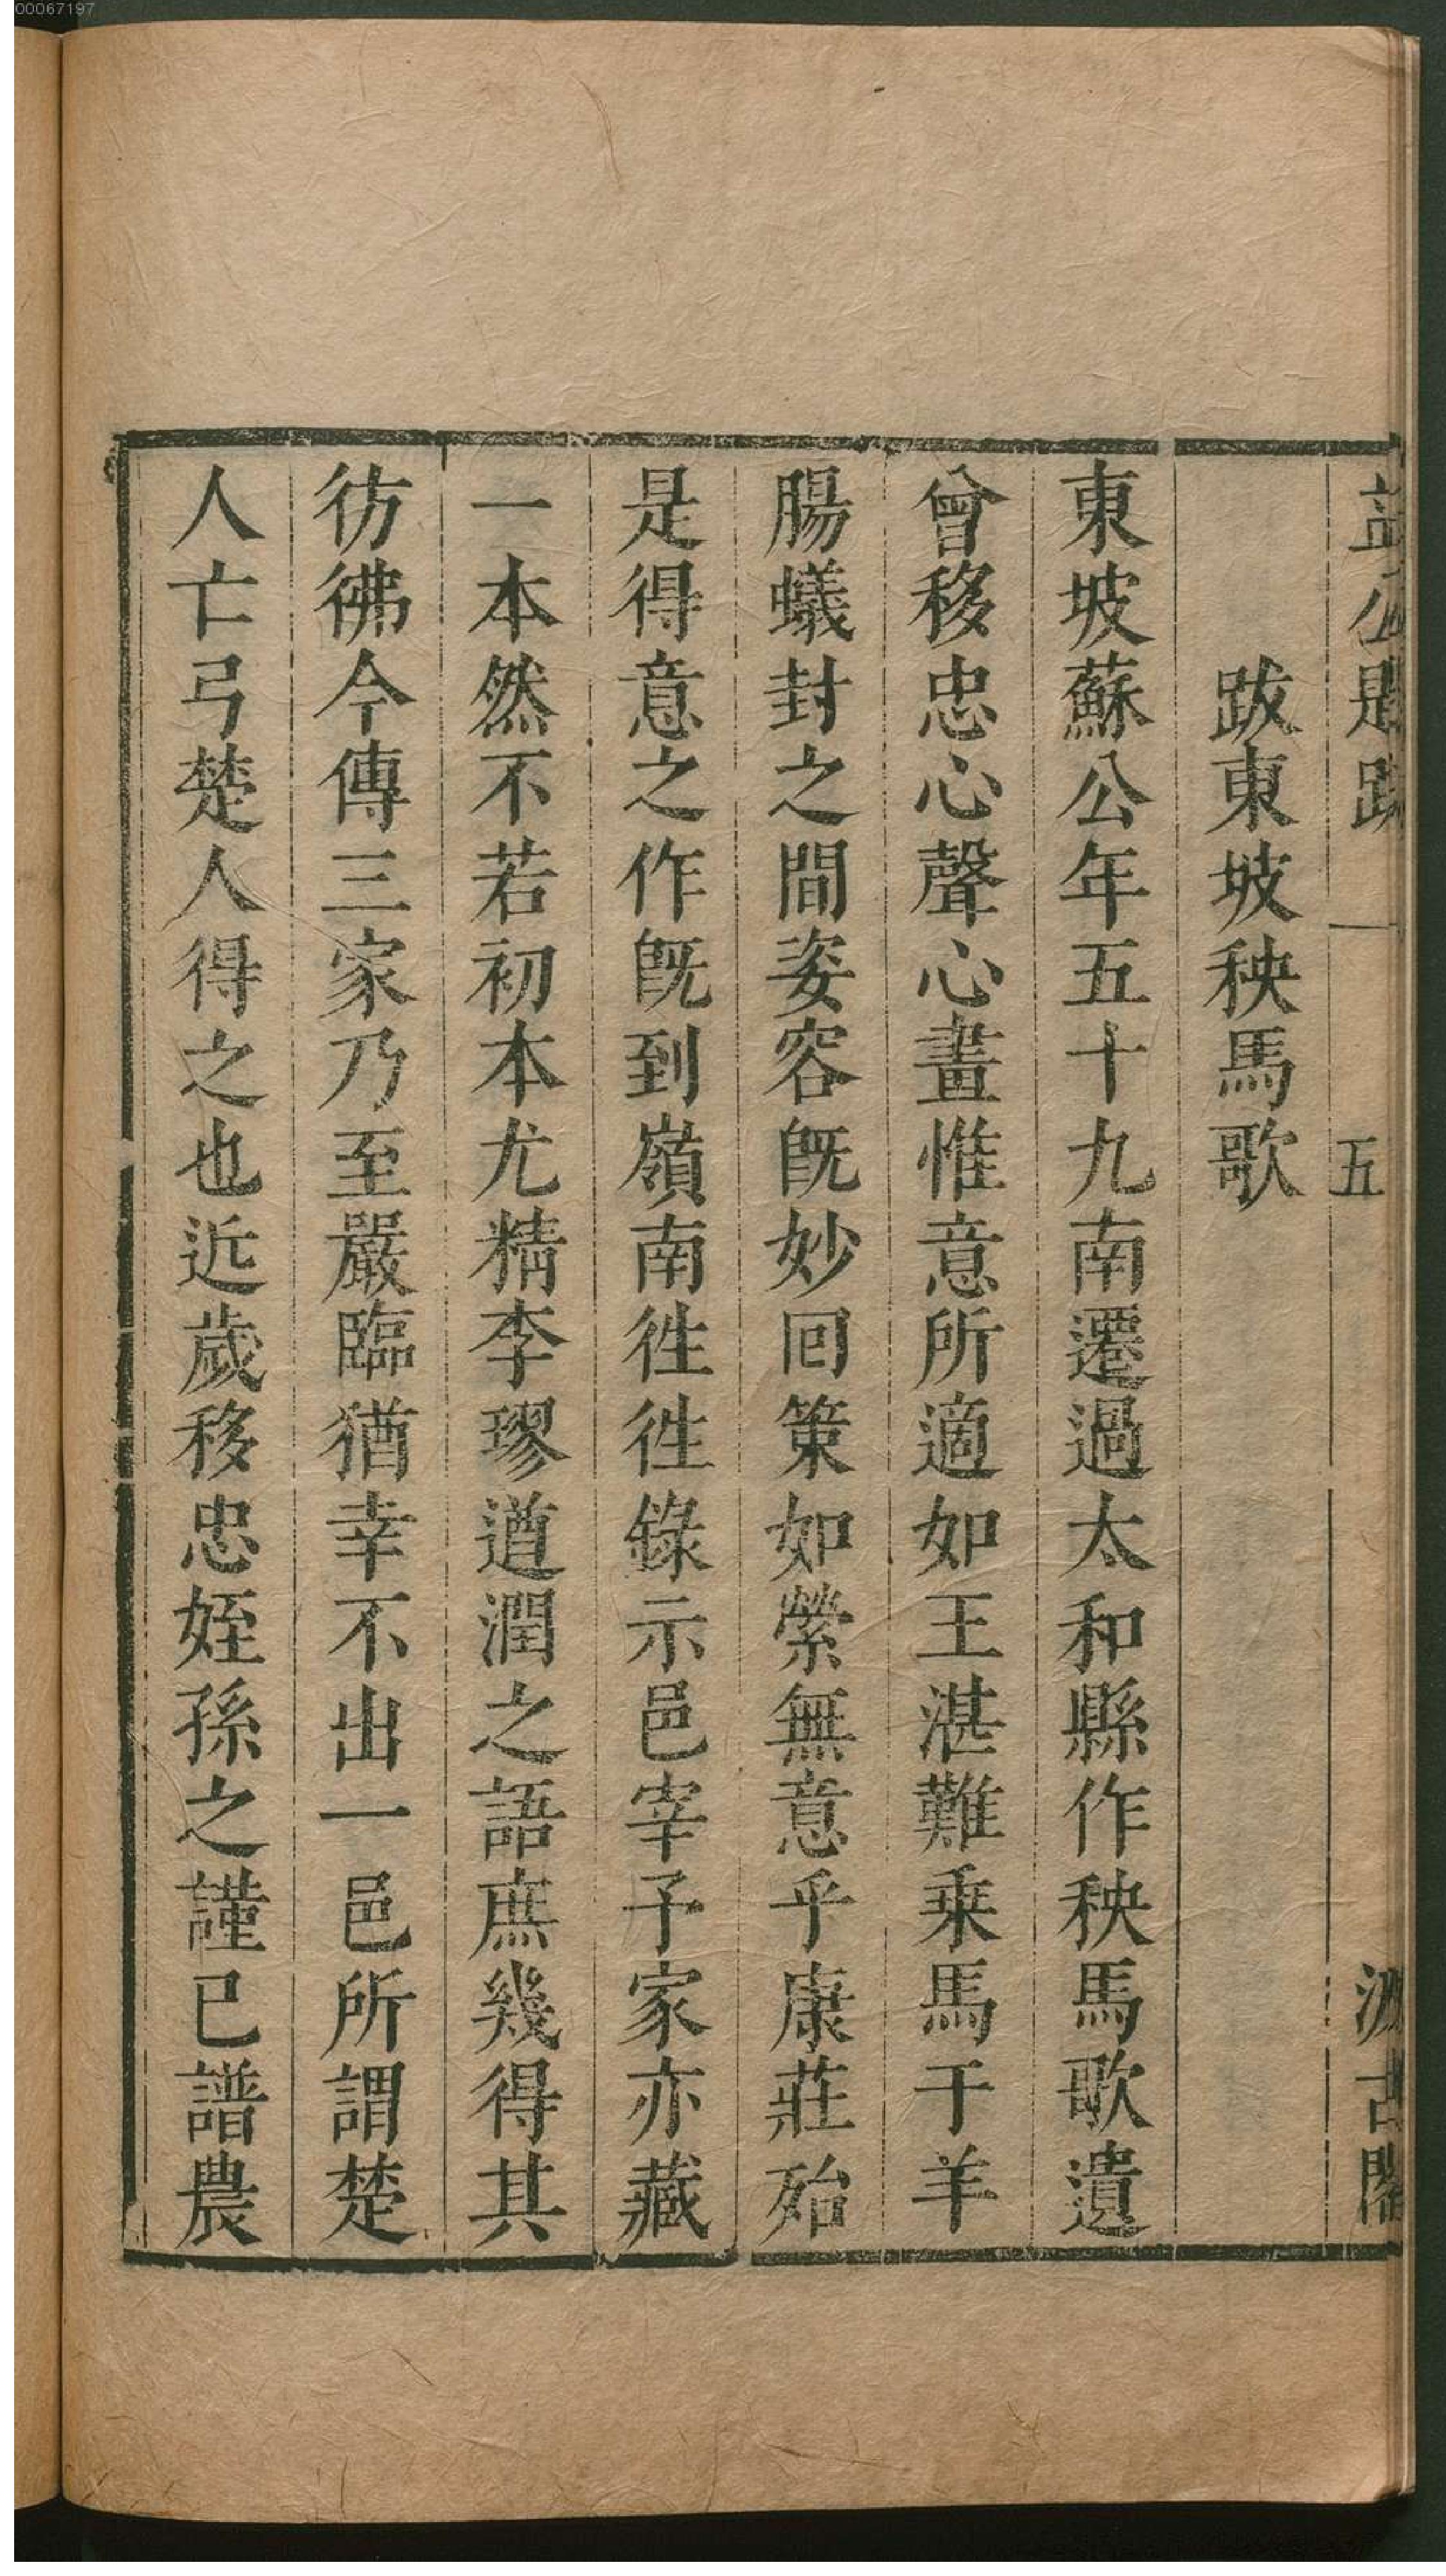 00067197
益公題跋 一 五 汲古閣
跋東坡秧馬歌
東坡蘇公年五十九南遷過太和縣作秧馬歌遺
曾移忠心聲心畫惟意所適如王湛難乗馬于羊
腸蟻封之間姿容旣妙回策如縈無意乎康莊殆
是得意之作旣到嶺南徃徃錄示邑宰予家亦藏
一本然不若初本尤精李璆道潤之語庶幾得其
彷彿今傳三家乃至嚴臨猶幸不出一邑所謂楚
人亡弓楚人得之也近歲移忠姪孫之謹已譜農